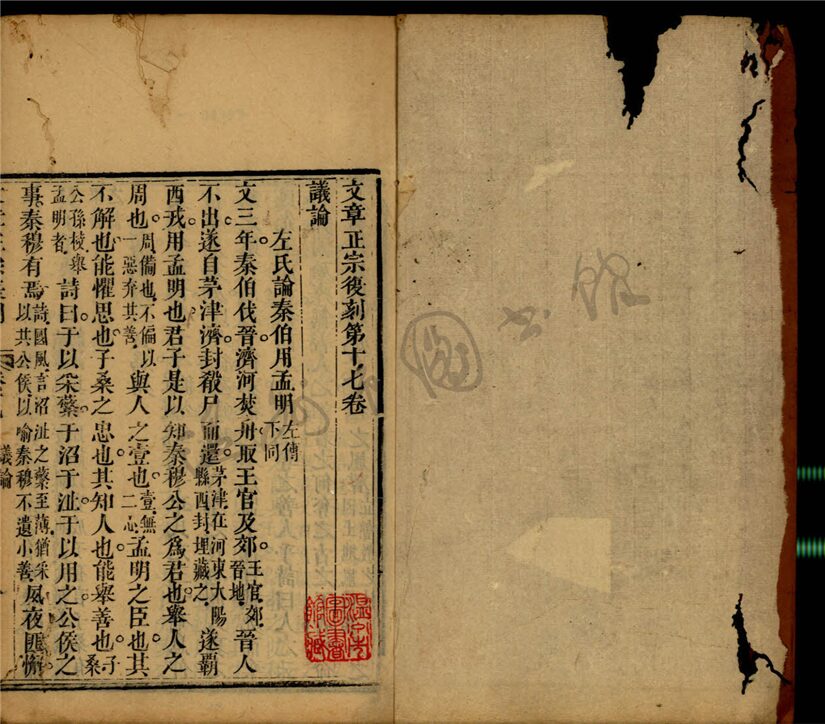 文章正宗復刻第十七卷
議論
左氏論秦伯用孟明左傳下同
文三年秦伯伐晉濟河焚舟取王官及郊王官郊晉地晉人
不出遂自茅津濟封殽尸而還茅津在河東大陽縣西封埋藏之遂霸
西戎用孟明也君子是以知秦穆公之爲君也舉人之
周也周備也不偏以一惡弃其善與人之壹也壹無二心孟明之臣也其
不解也能懼思也子桑之忠也其知人也能舉善也子桑
公孫枝舉孟明者詩曰于以采蘩于沼于沚于以用之公侯之
事秦穆有焉詩國風言沼沚之蘩至薄猶采以共公侯以喻秦穆不遺小善夙夜匪懈
議論